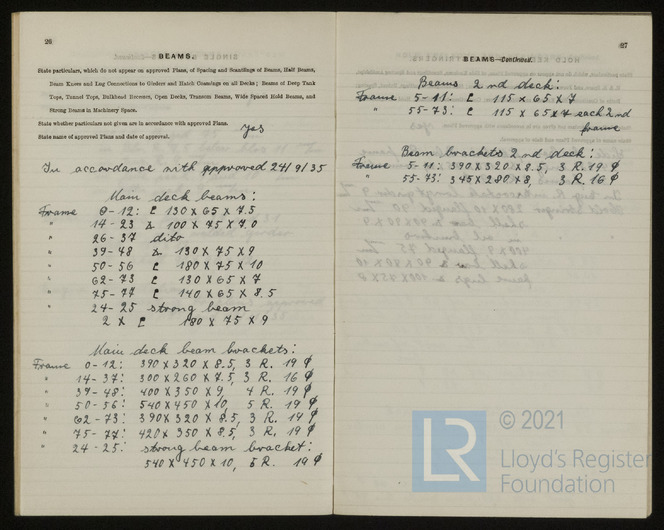 26
BEAMS.
State particulars, which do not appear on approved Plans, of Spacing and Scantlings of Beams, Half Beams,
Beam Knees and Lug Connections to Girders and Hatch Coamings on all Decks; Beams of Deep Tank
Tops, Tunnel Tops, Bulkhead Recesses, Open Decks, Transom Beams, Wide Spaced Hold Beams, and
Strong Beams in Machinery Space.
State whether particulars not given are in accordance with approved Plans.
yes
State name of approved Plans and date of approval.
In accordance with approved 24/9/35
Main deck beams:
Frame 0-12: [ 130 X 65 X 7.5
" 14-23 100 X 75 X 7.0
" 26-37 dito
" 39-48 130 X 75 X 9
" 50-56 [ 180 X 75 X 10
" 62-73 [ 130 X 65 X 7
" 75-77 [ 140 X 65 X 8.5
" 24-25 strong beam
2 X [ 180 X 75 X 9
Main deck beam brackets:
Frame 0-12: 390 X 320 X 8.5, 3 R. 19 ϕ
" 14-37: 300 X 260 X 7.5, 3 R. 16 ϕ
" 39-48: 400 X 350 X 9, 4 R. 19 ϕ
" 50-56: 540 X 450 X 10, 5 R. 19 ϕ
" 62-73: 390 X 320 X 8.5, 3 R. 19 ϕ
" 75-77: 420 X 350 X 8.5, 3 R. 19 ϕ
" 24-25: strong beam bracket:
540 X 450 X 10, 5 R. 19 ϕ
27
BEAMS—Continued.
Beams 2nd deck:
Frame 5-11: [ 115 X 65 X 7
" 55-73: [ 115 X 65 X 7 each 2nd
frame
Beam brackets 2nd deck:
Frame 5-11: 390 X 320 X 8.5, 3 R. 19 ϕ
" 55-73: 345 X 280 X 8, 3 R. 16 ϕ
LR
© 2021
Lloyd's Register
Foundation